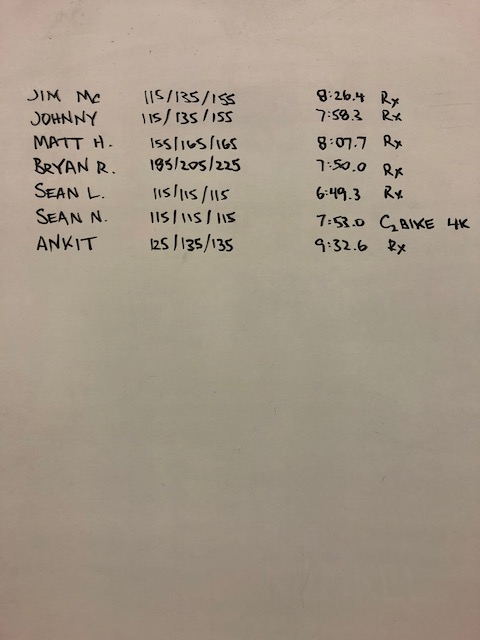 JIM MC 115/135/155 8:26.4 Rx
JOHNNY 115/135/155 7:58.2 Rx
MATT H. 155/165/165 8:07.7 Rx
BRYAN R. 185/205/225 7:50.0 Rx
SEAN L. 115/115/115 6:49.3 Rx
SEAN N. 115/115/115 7:53.0 C2 BIKE 4K
ANKIT 125/135/135 9:32.6 Rx